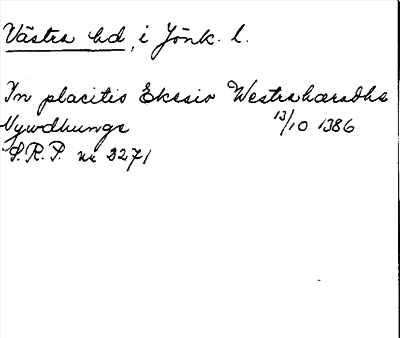 Västra hd, i Jönk. l.
In placitis Ekesio Westrahæradhs
Nywdhungs 13/10 1386
S.R.P. nr 2271